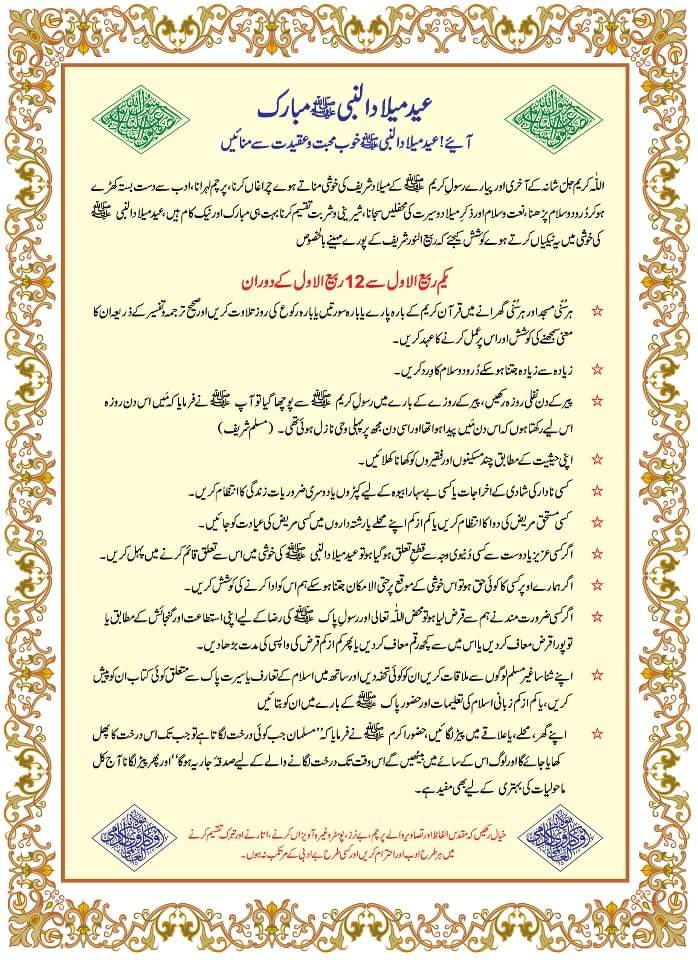 عید میلاد النبی ﷺ مبارک
آیئے! عید میلاد النبی ﷺ خوب محبت و عقیدت سے منائیں
اللہ کریم جل شانہ کے آخری اور پیارے رسولِ کریم ﷺ کے میلاد شریف کی خوشی مناتے ہوے چراغاں کرنا، پرچم لہرانا، ادب سے دست بستہ کھڑے
ہو کر دُرود و سلام پڑھنا، نعت و سلام اور ذکرِ میلاد و سیرت کی محفلیں سجانا، شیرینی و شربت تقسیم کرنا بہت ہی مبارک اور نیک کام ہیں، عید میلاد النبی ﷺ
کی خوشی میں یہ نیکیاں کرتے ہوے کوشش کیجئے کہ ربیع النور شریف کے پورے مہینے بالخصوص
یکم ربیع الاول سے 12 ربیع الاول کے دوران
☆ ہر سُنّی مسجد اور ہر سُنّی گھرانے میں قرآن کریم کے بارہ پارے یا بارہ سورتیں یا بارہ رکوع کی روز تلاوت کریں اور صحیح ترجمہ و تفسیر کے ذریعہ ان کا
معنی سمجھنے کی کوشش اور اس پر عمل کرنے کا عہد کریں۔
☆ زیادہ سے زیادہ جتنا ہو سکے دُرود و سلام کا ورد کریں۔
☆ پیر کے دن نفلی روزہ رکھیں، پیر کے روزے کے بارے میں رسولِ کریم ﷺ سے پوچھا گیا تو آپ ﷺ نے فرمایا کہ مَیں اس دن روزہ
اس لیے رکھتا ہوں کہ اس دن مَیں پیدا ہوا تھا اور اسی دن مجھ پر پہلی وحی نازل ہوئی تھی۔ (مسلم شریف)
☆ اپنی حیثیت کے مطابق چند مسکینوں اور فقیروں کو کھانا کھلائیں۔
☆ کسی نادار کی شادی کے اخراجات یا کسی بے سہارا بیوہ کے لیے کپڑوں یا دوسری ضروریات زندگی کا انتظام کریں۔
☆ کسی مستحق مریض کی دوا کا انتظام کریں یا کم از کم اپنے محلے یا رشتہ داروں میں کسی مریض کی عیادت کو جائیں۔
☆ اگر کسی عزیز یا دوست سے کسی دُنیوی وجہ سے قطع تعلق ہو گیا ہو تو عید میلاد النبی ﷺ کی خوشی میں اس سے تعلق قائم کرنے میں پہل کریں۔
☆ اگر ہمارے اوپر کسی کا کوئی حق ہو تو اس خوشی کے موقع پر حتی الامکان جتنا ہو سکے ہم اس کو ادا کرنے کی کوشش کریں۔
☆ اگر کسی ضرورت مند نے ہم سے قرض لیا ہو تو محض اللہ تعالی اور رسولِ پاک ﷺ کی رضا کے لیے اپنی استطاعت اور گنجائش کے مطابق یا
تو پورا قرض معاف کردیں یا اس میں سے کچھ رقم معاف کردیں یا پھر کم از کم قرض کی واپسی کی مدت بڑھا دیں۔
☆ اپنے شناسا غیر مسلم لوگوں سے ملاقات کریں ان کو کوئی تحفہ دیں اور ساتھ میں اسلام کے تعارف یا سیرت پاک سے متعلق کوئی کتاب ان کو پیش
کریں، یا کم از کم زبانی اسلام کی تعلیمات اور حضور پاک ﷺ کے بارے میں ان کو بتائیں
☆ اپنے گھر، محلے، یا علاقے میں پیڑ لگائیں، حضور اکرم ﷺ نے فرمایا کہ ”مسلمان جب کوئی درخت لگاتا ہے تو جب تک اس درخت کا پھل
کھایا جائے گا اور لوگ اس کے سائے میں بیٹھیں گے اس وقت تک درخت لگانے والے کے لیے صدقۂ جاریہ ہوگا“ اور پھر پیڑ لگانا آج کل
ماحولیات کی بہتری کے لیے بھی مفید ہے۔
خیال رکھیں کہ مقدس الفاظ اور تصاویر والے پرچم، بے نرز، پوسٹر وغیرہ آویزاں کرنے، اتارنے اور تبرک تقسیم کرنے
میں ہر طرح ادب اور احترام کریں اور کسی طرح بے ادبی کے مرتکب نہ ہوں۔